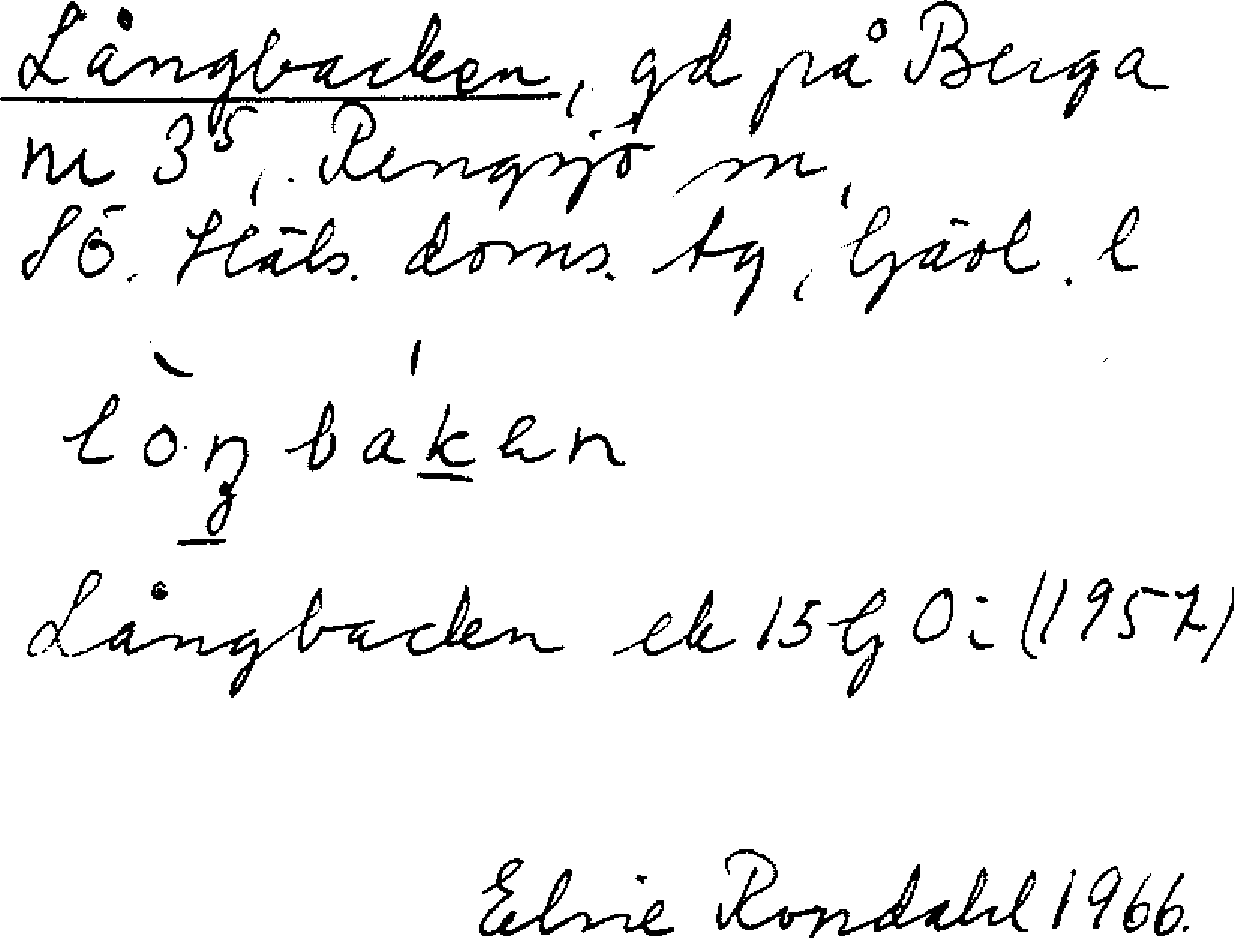 Långbacken, gd på Berga
nr 3⁵, Rengsjö sn,
SÖ. Häls. doms. tg, Gävl. l
lòŋbáken
Långbacken ek 15G Oi (1957)
Elsie Rondahl 1966.